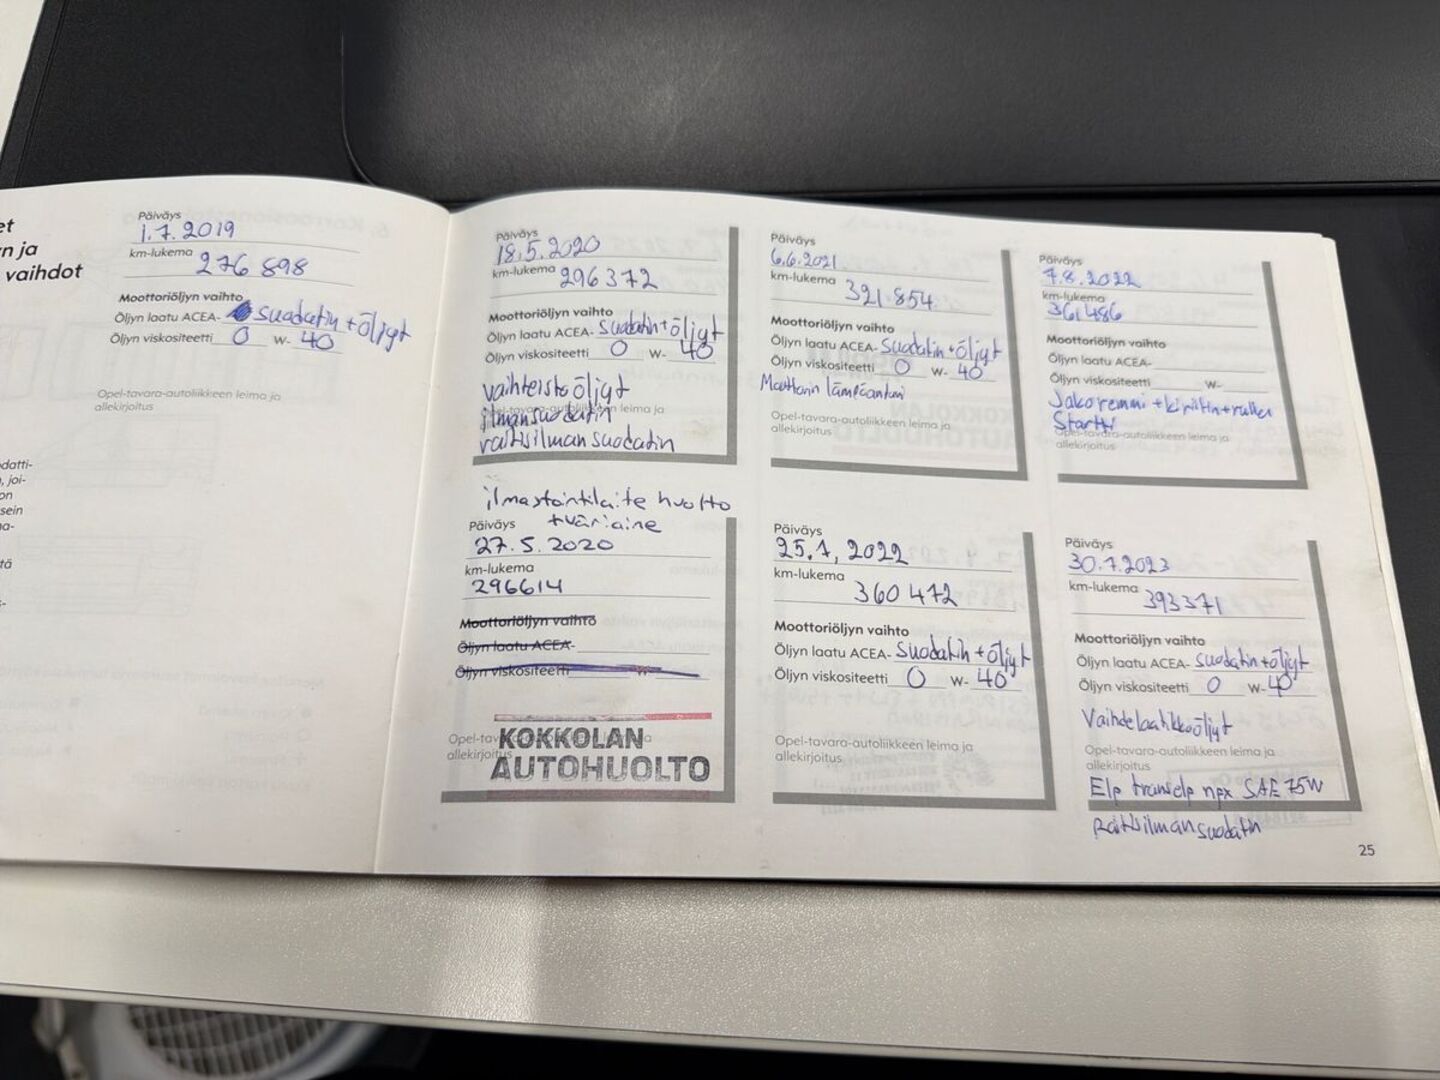 et
n ja
vaihdot
datti-
, joi-
on
sein
a-
tä
Päiväys
1.7.2019
km-lukema 276 898
Moottoriöljyn vaihto
Öljyn laatu ACEA- suodatin + öljyt
Öljyn viskositeetti 0 W- 40
Opel-tavara-autoliikkeen leima ja
allekirjoitus
Päiväys
18.5.2020
km-lukema 296372
Moottoriöljyn vaihto
Öljyn laatu ACEA- suodatin+öljyt
Öljyn viskositeetti 0 W- 40
vaihteistoöljyt
Opel-tavara-autoliikkeen leima ja
ilmansuodatin
raitisilmansuodatin
ilmastointilaite huolto
+väriaine
Päiväys
27.5.2020
km-lukema
296614
Moottoriöljyn vaihto
Öljyn laatu ACEA-
Öljyn viskositeetti W-
Opel-tavara-autoliikkeen leima ja
allekirjoitus
KOKKOLAN
AUTOHUOLTO
Päiväys
6.6.2021
km-lukema 321 854
Moottoriöljyn vaihto
Öljyn laatu ACEA- suodatin+öljyt
Öljyn viskositeetti 0 W- 40
Moottorin lämpöanturi
Opel-tavara-autoliikkeen leima ja
allekirjoitus
Päiväys
25.7.2022
km-lukema 360 472
Moottoriöljyn vaihto
Öljyn laatu ACEA- suodatin+öljyt
Öljyn viskositeetti 0 W- 40
Opel-tavara-autoliikkeen leima ja
allekirjoitus
Päiväys
7.8.2022
km-lukema
361486
Moottoriöljyn vaihto
Öljyn laatu ACEA-
Öljyn viskositeetti W-
Jakoremmi+kiristin+rulla
Startti
Opel-tavara-autoliikkeen leima ja
allekirjoitus
Päiväys
30.7.2023
km-lukema 393371
Moottoriöljyn vaihto
Öljyn laatu ACEA- suodatin+öljyt
Öljyn viskositeetti 0 W- 40
Vaihdelaatikkoöljyt
Opel-tavara-autoliikkeen leima ja
allekirjoitus
Elp tranself npx SAE 75W
Raitisilmansuodatin
25